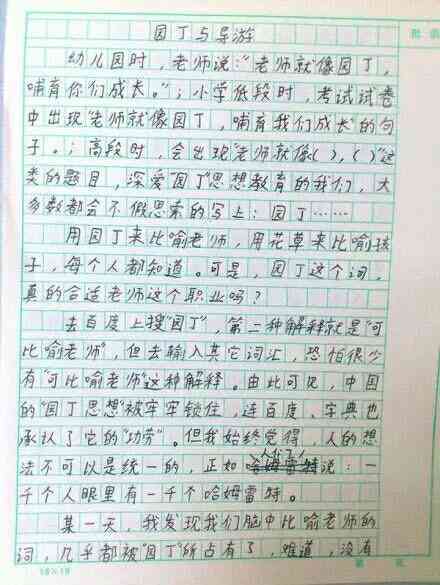 园丁与导游
幼儿园时，老师说：“老师就像园丁，
哺育你们成长。”；小学低段时，考试试卷
中出现“老师就像园丁，哺育我们成长”的句
子。；高段时，会出现“老师就像( )，( )”这
类的题目，深爱“园丁”思想教育的我们，大
多数都会不假思索的写上：园丁……
用园丁来比喻老师，用花草来比喻孩
子，每个人都知道。可是，园丁这个词，
真的合适老师这个职业吗？
去百度上搜“园丁”，第二种解释就是“可
比喻老师”，但去输入其它词汇，恐怕很少
有“可比喻老师”这种解释。由此可见，中国
的“园丁思想”被牢牢锁住，连百度、字典也
承认了它的“功劳”。但我始终觉得，人的想
法不可以是统一的，正如哈姆雷特说：一
千个人眼里有一千个哈姆雷特。
某一天，我发现我们脑中比喻老师的
词，几乎都被“园丁”所占有了，难道，没有